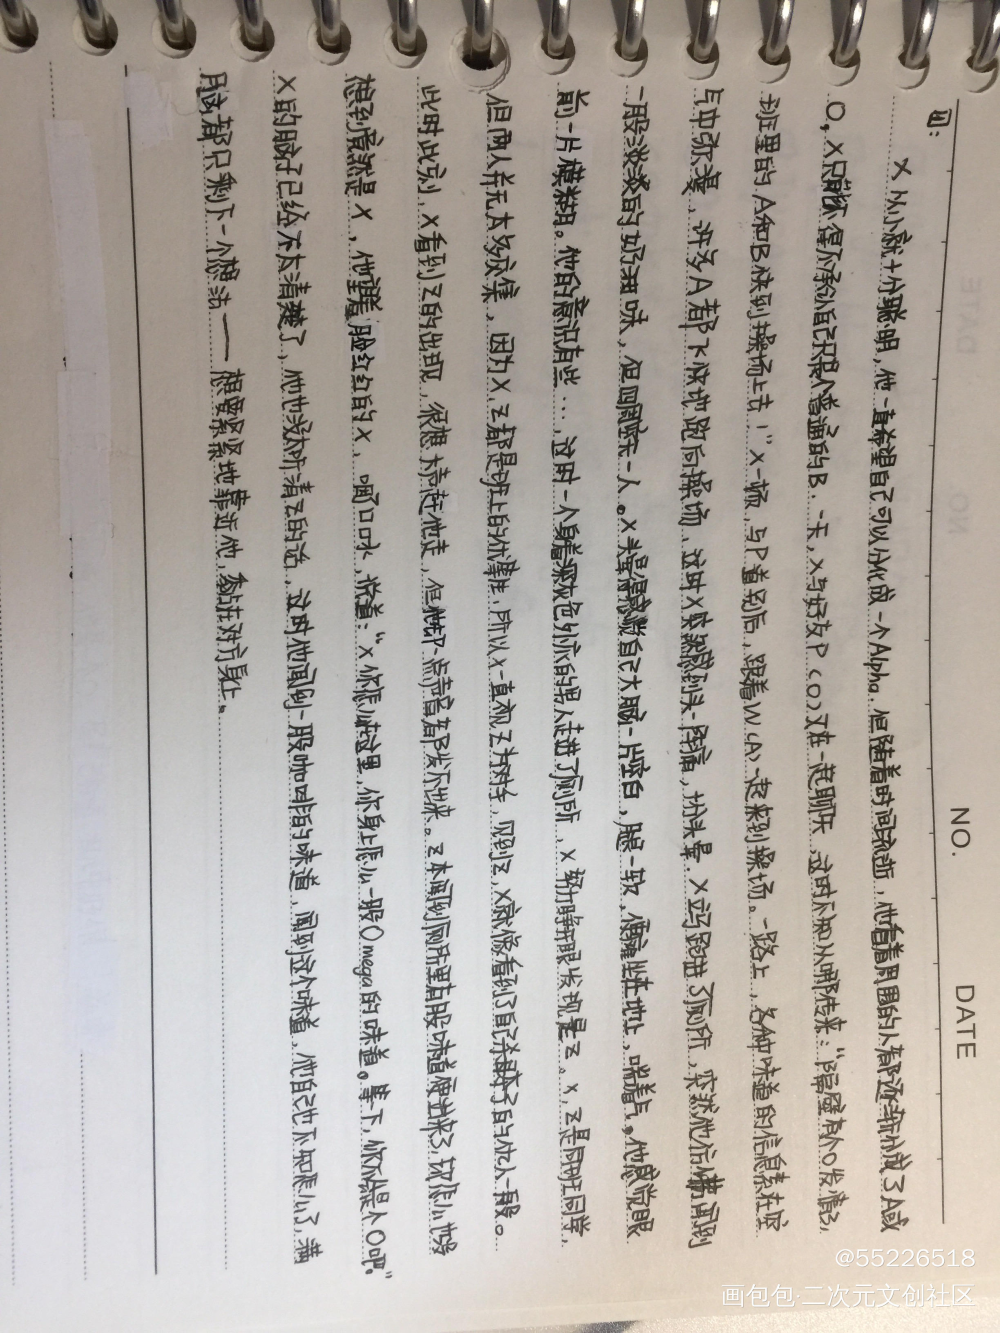 NO.
DATE
四:
X从小就十分聪明,他一直希望自己可以分化成一个Alpha.但随着时间流逝,他看着周围的人都逐渐分成了A或
O,X只能不得不承认自己只是个普通的B.一天,X与好友P(O)又在一起聊天,这时不知从哪传来:“隔壁有个O发情了,
班里的A和B快到操场上去!”X一顿,与P道别后,跟着W(A)一起来到操场。一路上,各种味道的信息素在空
气中弥漫,许多A都飞快地跑向操场,这时X突然感到头一阵痛,十分头晕.X立马跑进了厕所,突然他仿佛闻到
一股淡淡的奶甜味,但四周空无一人。X头晕得感觉自己大脑一片空白,腿一软,便瘫坐在地上,喘着气。他感觉眼
前一片模糊。他的意识有些…,这时一个身着深灰色外衣的男人走进了厕所,X努力睁开眼发现是Z。X,Z是同班同学,
但两人并无太多交集,因为X,Z都是班上的优等生,所以X一直视Z为对手,见到Z,X就像看到了自己杀母夺子的仇人一般。
此时此刻,X看到Z的出现,很想赶他走,但他却一点声音都发不出来。Z本闻到厕所里有股味道便进来了,却怎么也没
想到竟然是X,他望着脸红红的X,咽口水,说道:“X你怎么在这里,你身上怎么一股Omega的味道。等下,你不会是个O吧。”
X的脑子已经不太清楚了,他也没太听清Z的话,这时他闻到一股咖啡的味道,闻到这个味道,他自己也不知怎么了,满
脑都只剩下一个想法——想要紧紧地靠近他,黏在对方身上。
@55226518
画包包·二次元文创社区